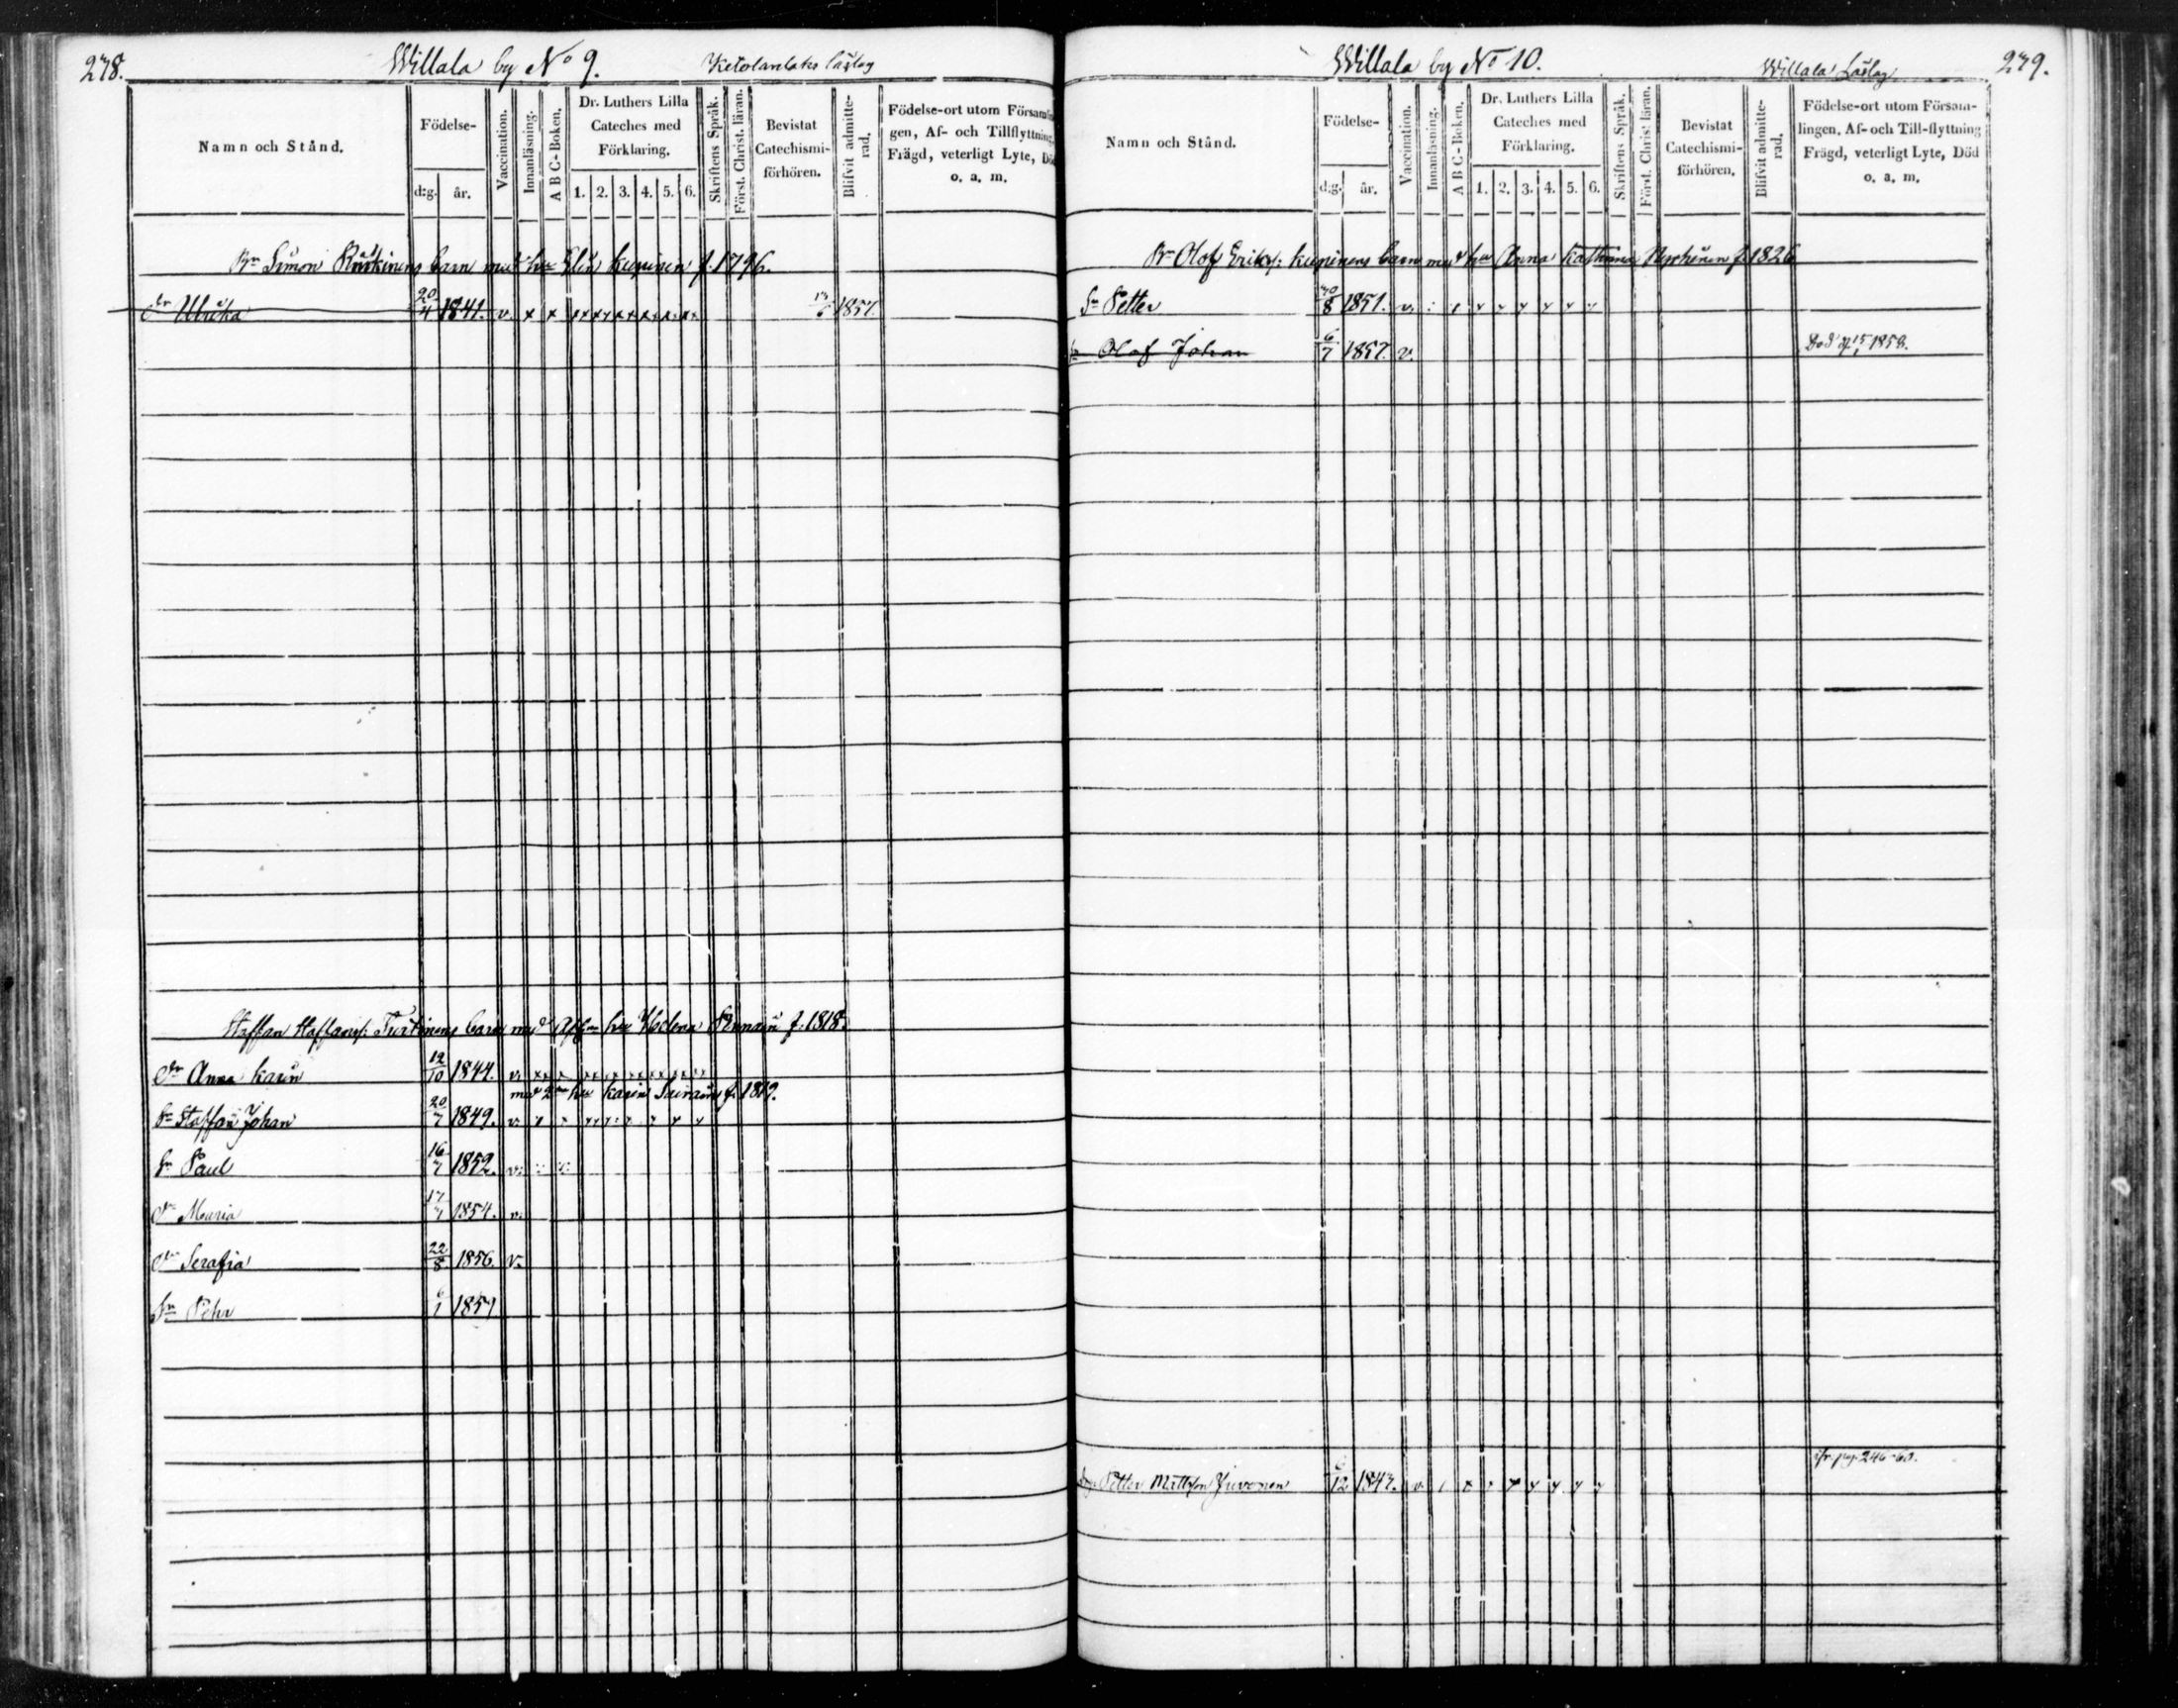 278.
Willala by No 9.
Födelse-
Vaccination.
Innanläsning.
A B C-Boken.
Dr. Luthers Lilla
Cateches med
Förklaring.
Skriftens Språk.
Först. Christ. läran.
Bevistat
Catechismi-
förhören.
Blifvit admitte-
rad.
Födelse-ort utom Försam
gen, Af- och Tillflyttning
Frägd, veterligt Lyte, Död
o. a. m.
Namn och Stånd.
d:g. år.
1. 2. 3. 4. 5. 6.
Simon barn med hu Elin Kupinen f. 1796.
dr Ulrika 20/4 1841. v. x x 1857.
Staffan Staffans: Turtinens barn med hu Helena f: 1818.
dr Anna Karin 12/10 1844. v.
med 2 hu Karin f. 1819.
Sn Staffan Johan 20/7 1849. v.
Sn Paul 16/7 1852. v.
dr Maria 17/7 1854. v.
dr Serafia 22/8 1856. v.
Sn Pehr 6/1 1859
Willala by No 10.
Willala Läslag
279.
Namn och Stånd.
Födelse-
d:g. år.
Vaccination.
Innanläsning.
A B C-Boken.
Dr. Luthers Lilla
Cateches med
Förklaring.
1. 2. 3. 4. 5. 6.
Skriftens Språk.
Först. Christ läran.
Bevistat
Catechismi-
förhören.
Blifvit admitte-
rad.
Födelse-ort utom Försam-
lingen, Af- och Till-flyttning
Frägd, veterligt Lyte, Död
o. a. m.
Olof Erikss: Kupinens barn med hu Anna f. 1826
Sn Petter 1851. v.
Sn Olof Johan 6/7 1857. v. Död 1858.
Petter Mattsson Juvonen 6/12 1843. v. pag. 246-60.